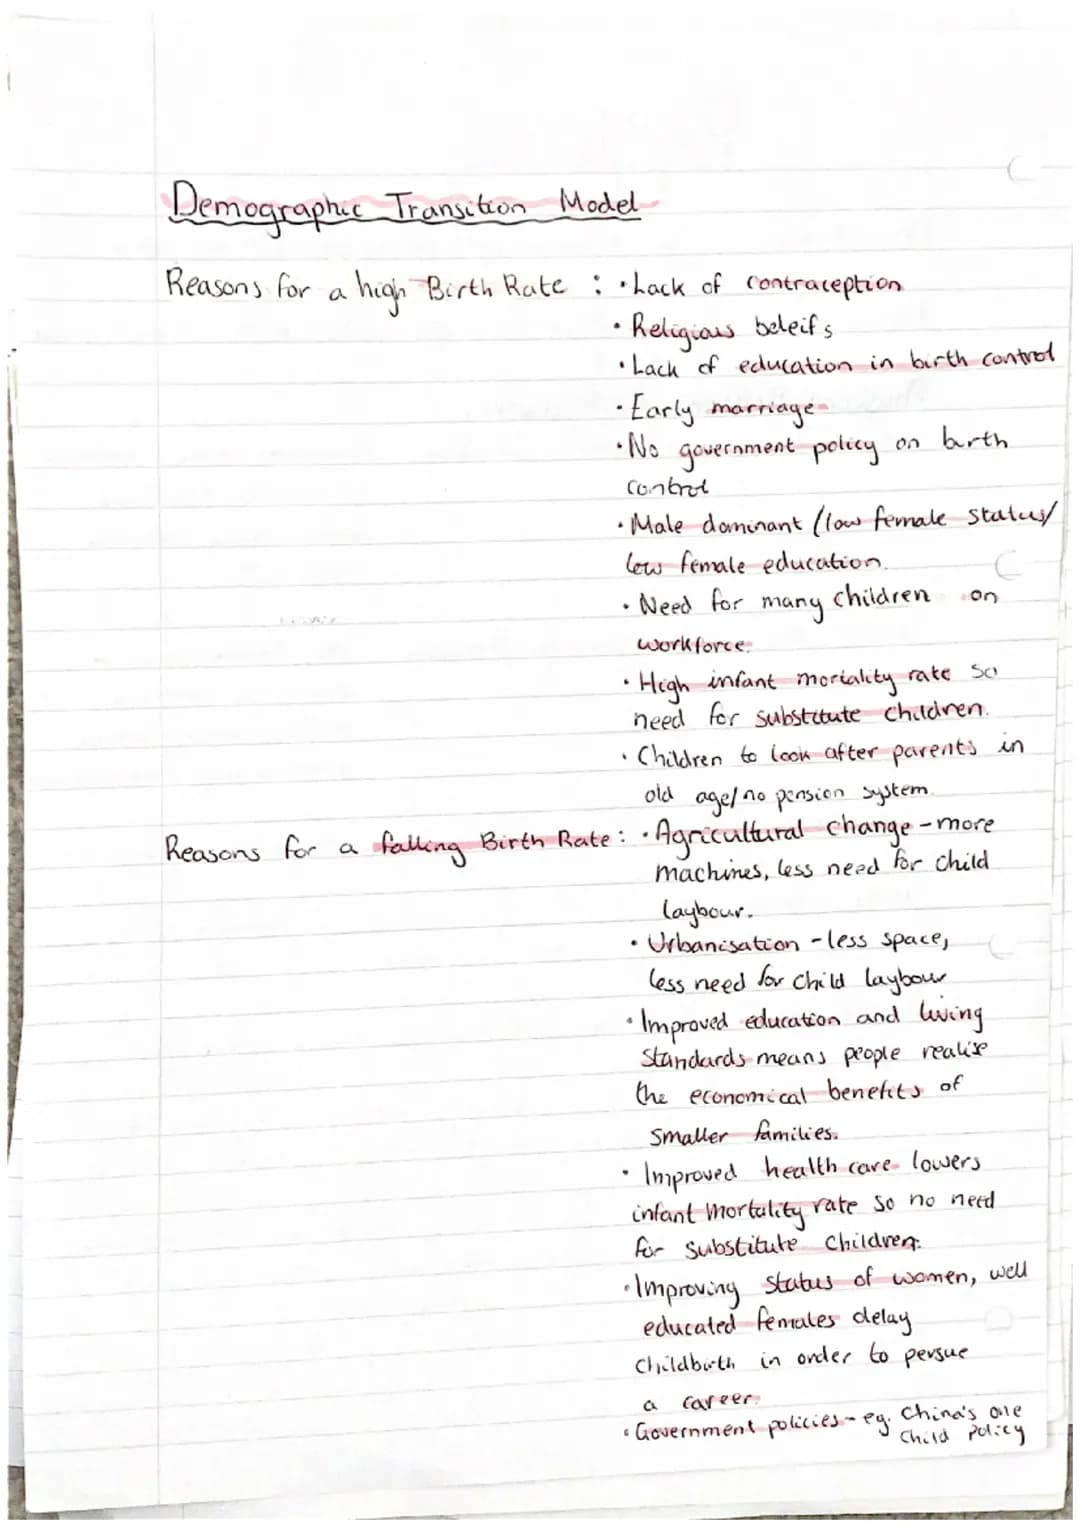 Demographic Transition Model
Reasons for a high Birth Rate : • Lack of contraception
• Religious beleifs
• Lack of education in birth control
• Early marriage
• No government policy on birth
control
• Male dominant (low female status/
low female education.
• Need for many children on
workforce.
• High infant mortality rate so
need for substitute children.
• Children to look after parents in
old age/no pension system.
Reasons for a falling Birth Rate: • Agricultural change - more
machines, less need for child
laybour.
• Urbanisation - less space,
less need for child laybour
• Improved education and living
standards means people realise
the economical benefits of
smaller families.
• Improved health care lowers
infant mortality rate so no need
for substitute children.
• Improving status of women, well
educated females delay
childbirth in order to persue
a career.
• Government policies - eg. China's one
child policy